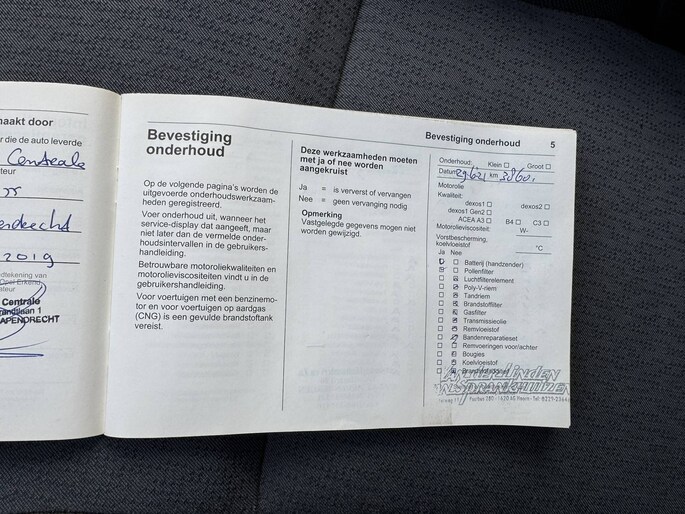 aakt door
r die de auto leverde
Centrale
teur
2019
dtekening van
Opel Erkend
teur
Centrale
randtlaan 1
APENDRECHT
Bevestiging
onderhoud
Op de volgende pagina's worden de
uitgevoerde onderhoudswerkzaam-
heden geregistreerd.
Voer onderhoud uit, wanneer het
service-display dat aangeeft, maar
niet later dan de vermelde onder-
houdsintervallen in de gebruikers-
handleiding.
Betrouwbare motoroliekwaliteiten en
motorolieviscositeiten vindt u in de
gebruikershandleiding.
Voor voertuigen met een benzinemo-
tor en voor voertuigen op aardgas
(CNG) is een gevulde brandstoftank
vereist.
Deze werkzaamheden moeten
met ja of nee worden
aangekruist
Ja = is ververst of vervangen
Nee = geen vervanging nodig
Opmerking
Vastgelegde gegevens mogen niet
worden gewijzigd.
Bevestiging onderhoud 5
Onderhoud: Klein Groot
Datum km
Motorolie
Kwaliteit:
dexos1 dexos2
dexos1 Gen2
ACEA A3 B4 C3
Motorolieviscositeit: W-
Vorstbescherming,
koelvloeistof °C
Ja Nee
Batterij (handzender)
Pollenfilter
Luchtfilterelement
Poly-V-riem
Tandriem
Brandstoffilter
Gasfilter
Transmissieolie
Remvloeistof
Bandenreparatieset
Remvoeringen voor/achter
Bougies
Koelvloeistof